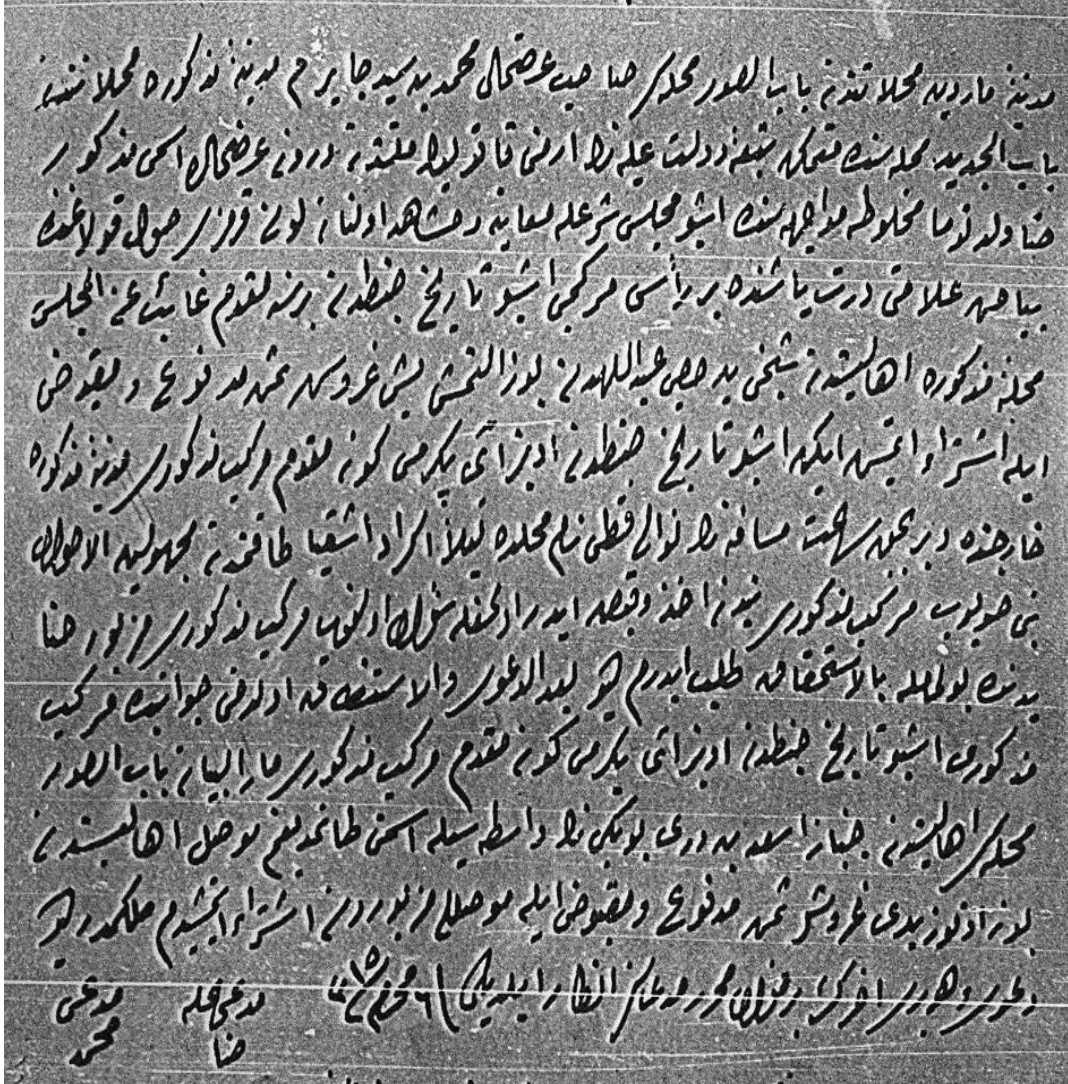 مدينهٔ ماردين محلاتندن باب الصور محله‌لى صاحب عرضحال محمد بن سيد جابر م مدينهٔ مذكوره محلاتندن
باب الجديد محله‌سنده متمكن تبعهٔ دولت عليه‌نك ارمنى قاتوليك ملتندن درون عرضحال اسمى مذكور
حنا ولد توما مخلوطه مواجهه‌سنده اشبو مجلس شرعله معاينه ومشاهد اولنان لونى صول قولاغنده
بياض علامتى درت ياشنده بر رأس مركبى اشبو تاريخ ضبطدن بر سنه مقدم غائب عن المجلس
محلهٔ مذكوره اهاليسندن شيخى بن عبداللهدن يوز التمش بش غروش ثمن مدفوع ومقبوض
ايله اشتراء ايتمش ايكن اشبو تاريخ ضبطدن اون التى يكرمى كون مقدم مركب مذكورى مدينهٔ مذكوره
خارجنده و بر بحق ساعت مسافه‌ده نام محلده ليلاً اكراد اشقيا طاقمندن مجهولين الاحوال
بنى صويوب مركب مذكورى بندن اخذ وقبض ايدرك اولنوب مركب مذكورى مزبور حنا
يدنده بولمغله بالاستحقاق طلب ايدرم ديو بعد الدعوى والاستنطاق اولدخى جوابنده مركب
مذكورى اشبو تاريخ ضبطدن اون التى يكرمى كون مقدم مركب مذكورى مار البيان باب الصور
محله‌لى اهاليسندن خباز اسعد بن واسطه‌سيله اسمن طانمديغم موصل اهاليسندن
يوز اوتوز يدى غروش ثمن مدفوع ومقبوض ايله موصللى مزبوردن اشتراء ايتمشيدم ملكمدر ديو
دعوى مدعاسن انكار ايلديكى ١٦ محرم سنه ١٥
مدعى عليه مدعى
حنا محمد